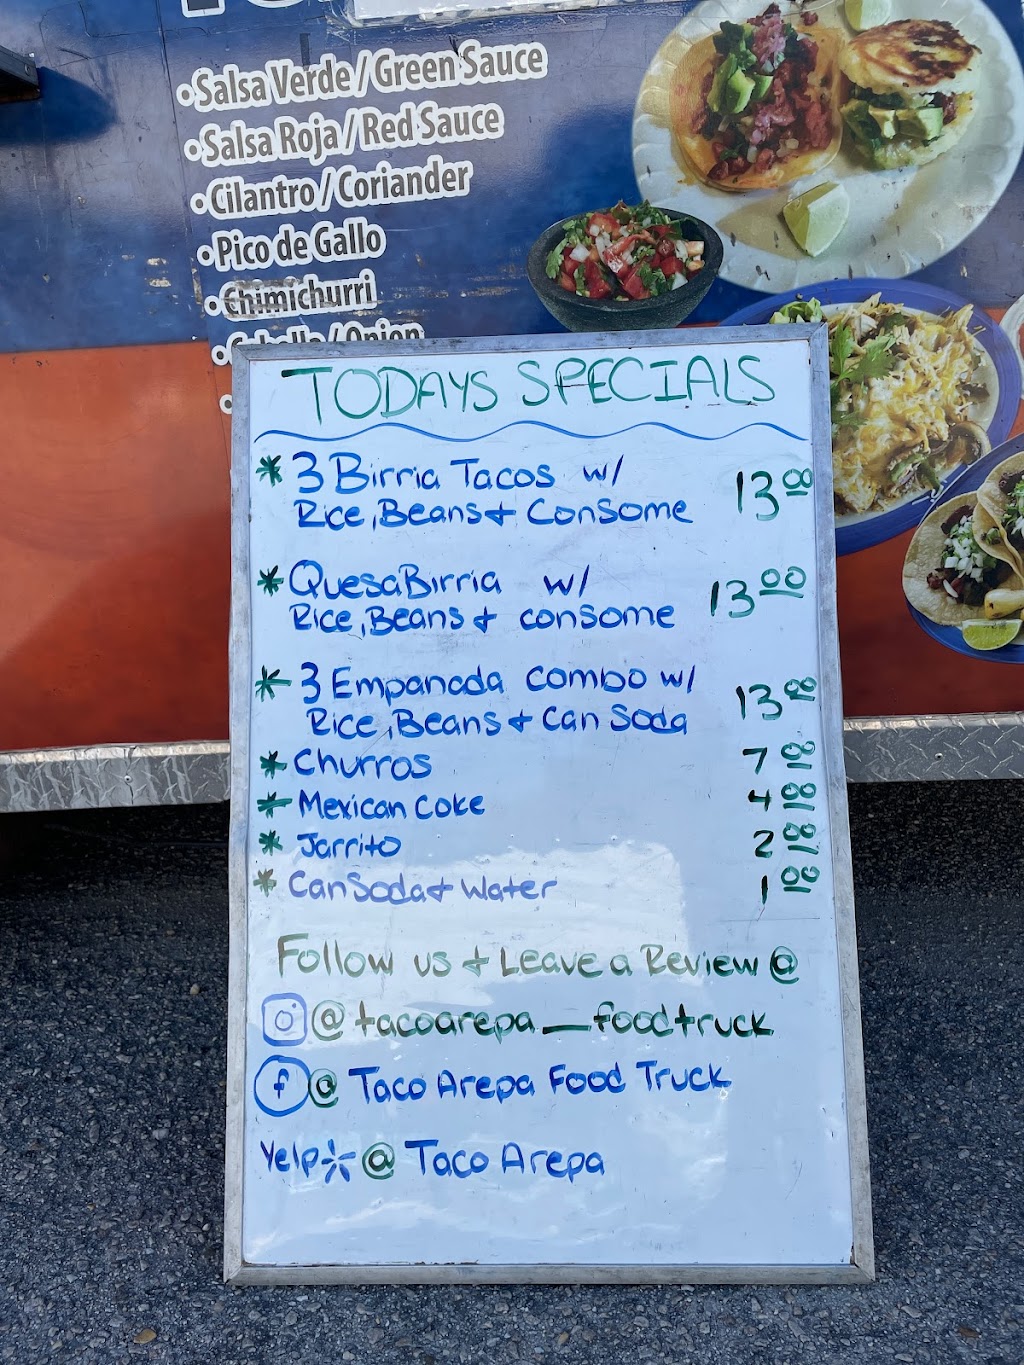 • Salsa Verde / Green Sauce
• Salsa Roja / Red Sauce
• Cilantro / Coriander
• Pico de Gallo
• Chimichurri
• Cebolla / Onion
TODAYS SPECIALS
* 3 Birria Tacos w/
Rice, Beans & Consome 13.00
* QuesaBirria w/
Rice, Beans & consome 13.00
* 3 Empanada combo w/
Rice, Beans & Can Soda 13.00
* Churros 7.00
* Mexican Coke 4.00
* Jarrito 2.00
* Can Soda & Water 1.00
Follow us & Leave a Review @
@tacoarepa_foodtruck
f @ Taco Arepa Food Truck
Yelp @ Taco Arepa